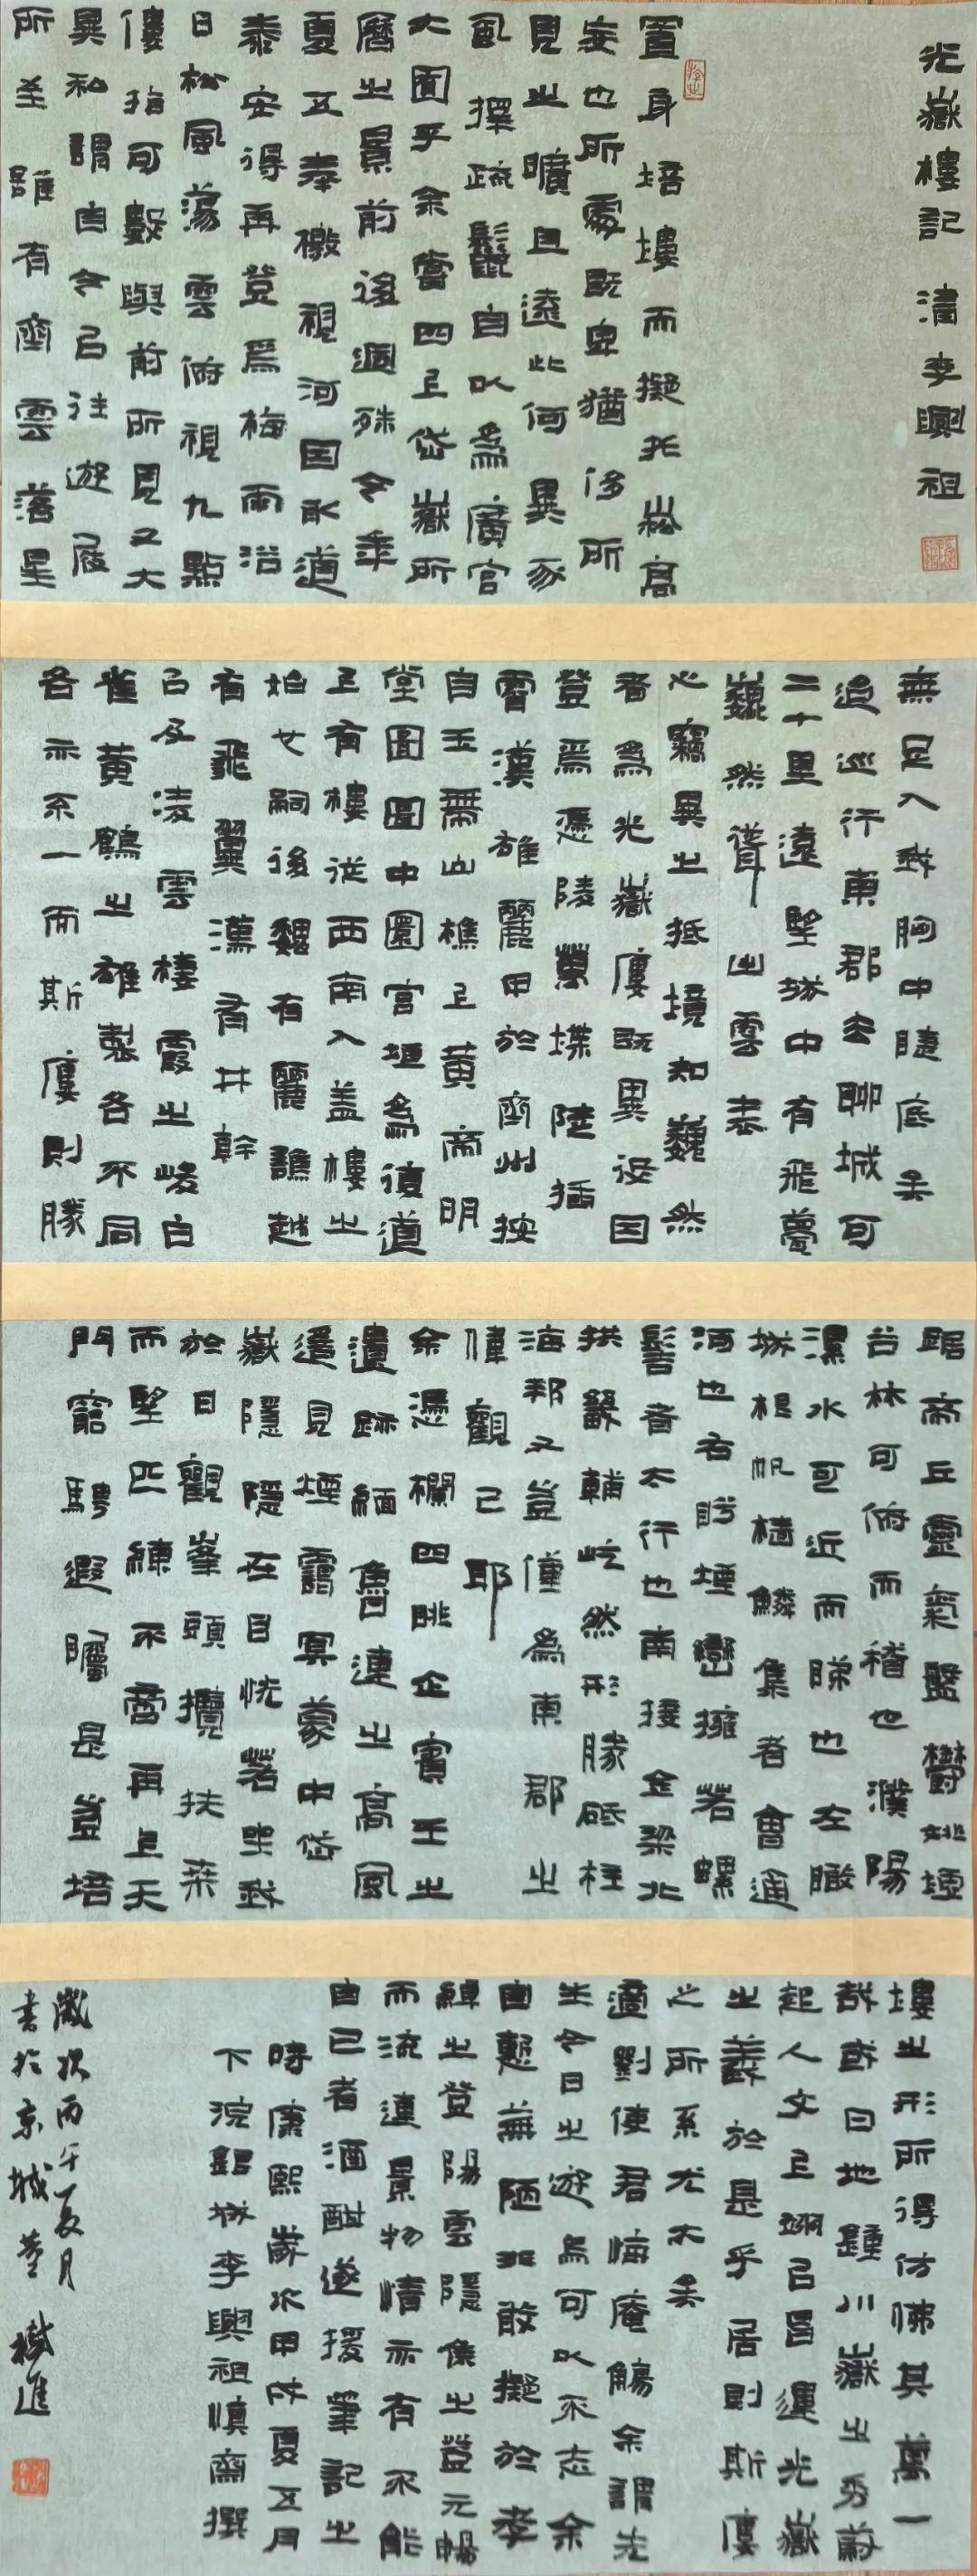 光嶽樓記 清 李興祖
置身培塿而擬比崧高
妄也所處既卑猶侈所
見之曠且遠此何異豕
虱擇疏鬣自以為廣宮
大囿乎余嘗四上岱嶽所
曆之景前後迥殊今年
夏五奉檄視河囯取道
泰安得再登焉梅雨浴
日松風蕩雲俯視九點
僂指可數與前所見又大
異私謂自今㠯往遊屐
所至雖有齊雲落星
無足入我胸中睫底矣
迨巡行東郡去聊城可
二十里遠望城中有飛甍
巍然聳出雲表
心竊異之抵境知巍然
者為光嶽廔既異詫因
登焉憑陵萬堞陡插
霄漢雄麗甲於齊州按
自玉帶山樵上黃帝明
堂圖圖中圜宮垣為復道
上有樓從西南入蓋樓之
始也嗣後魏有麗譙越
有飛翼漢有井幹
㠯及凌雲棲霞之峻白
雀黃鶴之雄製各不同
各亦不一而斯廔則勝
踞帝丘靈氣盤鬱姚墟
台林可俯而稽也濮陽
漯水可近而睇也左瞰
城根帆檣鱗集者會通
河也右眄堙巒擁若螺
髻者太行也南接金梁北
拱繇輔屹然形勝砥柱
海邦又豈僅為東郡之
偉觀已耶
余憑欄四眺企賓王之
遺跡緬魯連之高風
遙見煙靄冥蒙中岱
嶽隱隱在目恍若坐我
於日觀峯頭攬扶桒
而望匹練不啻再上天
門窮騁遐矚是豈培
塿之形所得仿佛其萬一
哉或曰地鍾川嶽之秀蔚
起人文上翊㠯昌運光嶽
之義於是乎居則斯廔
之所系尤大矣
適劉使君悔庵觴余謂先
生今日之遊焉可以不志余
自慙蕪陋非敢擬於孝
綽之登陽雲隱侯之登元暢
而流連景物情亦有不能
自已者酒酣遂援筆記之
時康熙歲次甲戌夏五月
下浣銀城李興祖慎齋撰
歲次丙午夏月
書於京城 董 進